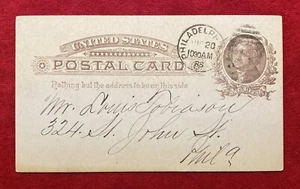 UNITED STATES
POSTAL CARD
Nothing but the address to be on this side.
PHILADELPH
20
1030AM
Mr. Louis Robinson
324 St. John St.
Phila